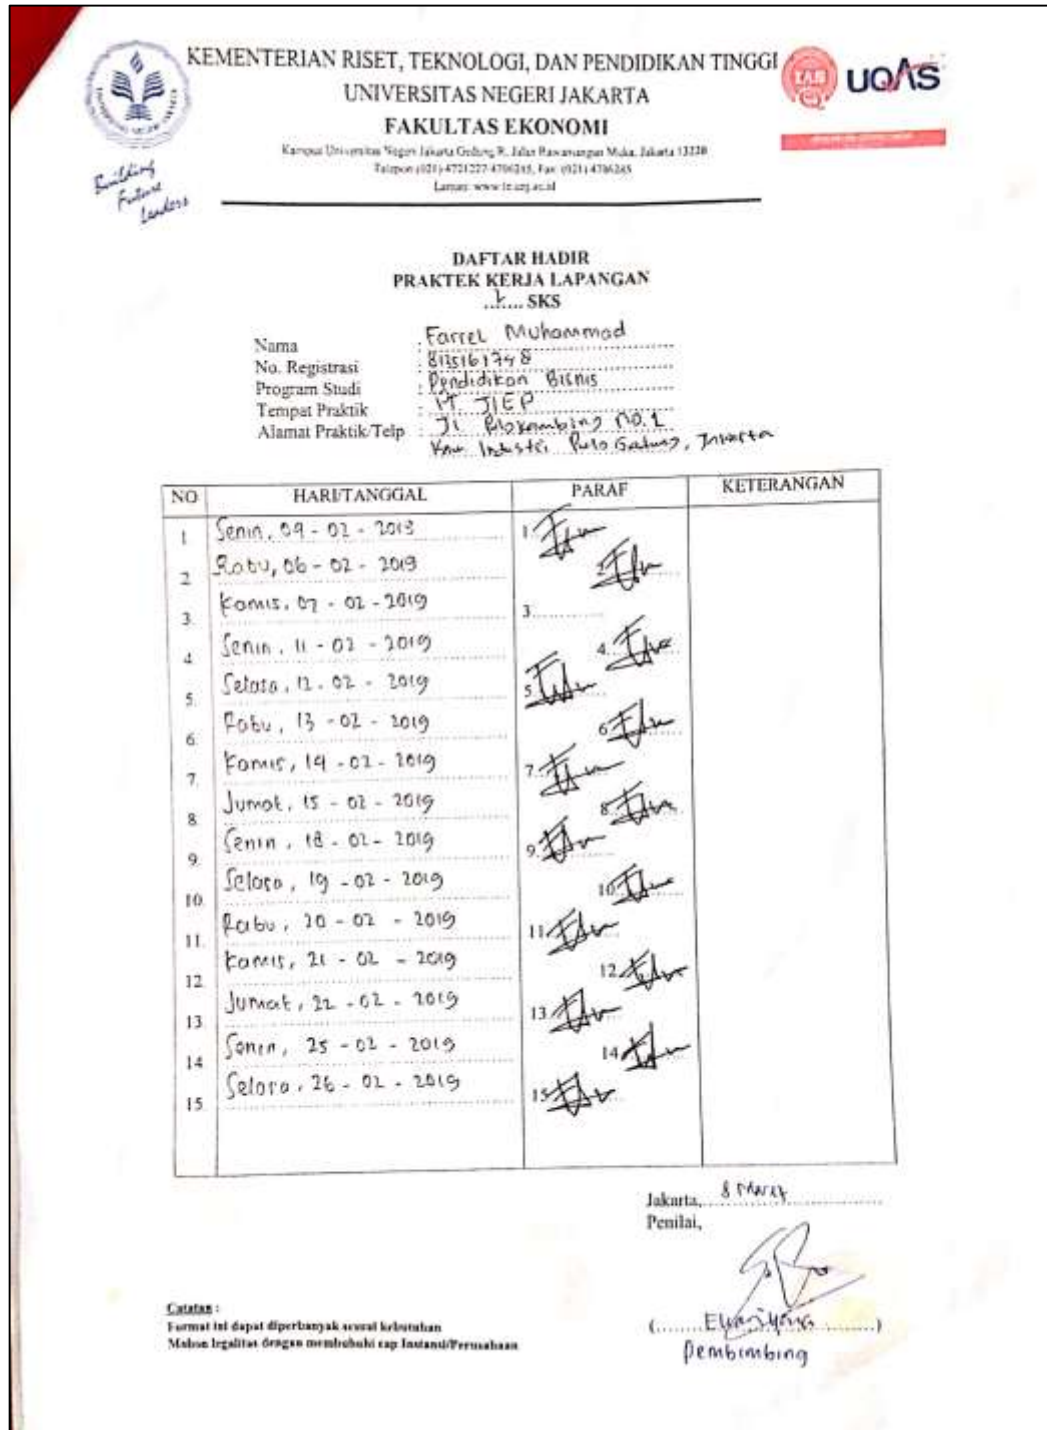 KEMENTERIAN RISET, TEKNOLOGI, DAN PENDIDIKAN TINGGI
UNIVERSITAS NEGERI JAKARTA
FAKULTAS EKONOMI
Kampus Universitas Negeri Jakarta Gedung R, Jalan Rawamangun Muka, Jakarta 13220
Telepon (021) 4721227/4706285, Fax: (021) 4706285
Laman: www.fe.unj.ac.id
Building
Future
Leaders
UQAS
DAFTAR HADIR
PRAKTEK KERJA LAPANGAN
SKS
Nama : Farrel Muhammad
No. Registrasi : 8135161748
Program Studi : Pendidikan Bisnis
Tempat Praktik : PT JIEP
Alamat Praktik/Telp : Jl. Pulokambing No. 1
Kaw. Industri Pulo Gadung, Jakarta
NO HARI/TANGGAL PARAF KETERANGAN
1 Senin, 04 - 02 - 2019 1.
2. Rabu, 06 - 02 - 2019 2.
3. Kamis, 07 - 02 - 2019 3.
4. Senin, 11 - 02 - 2019 4.
5. Selasa, 12 - 02 - 2019 5.
6. Rabu, 13 - 02 - 2019 6.
7. Kamis, 14 - 02 - 2019 7.
8. Jumat, 15 - 02 - 2019 8.
9. Senin, 18 - 02 - 2019 9.
10. Selasa, 19 - 02 - 2019 10.
11. Rabu, 20 - 02 - 2019 11.
12. Kamis, 21 - 02 - 2019 12.
13. Jumat, 22 - 02 - 2019 13.
14. Senin, 25 - 02 - 2019 14.
15. Selasa, 26 - 02 - 2019 15.
Jakarta, 8 Maret
Penilai,
Catatan :
Format ini dapat diperbanyak sesuai kebutuhan
Mohon legalitas dengan membubuhi cap Instansi/Perusahaan
Pembimbing